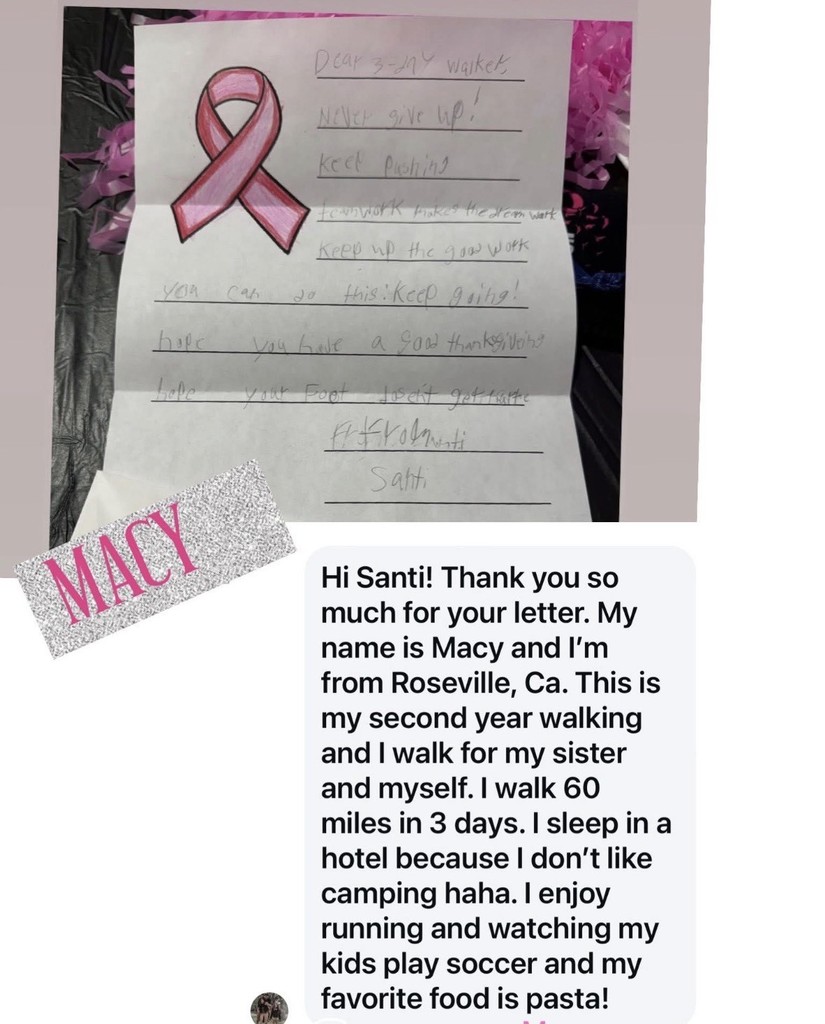 Dear 3-DAY walker,
Never give up!
Keep pushing
teamwork makes the dream work
Keep up the good work
you can do this! Keep going!
hope you have a good thanksgiving
hope your Foot
Santi
MACY
Hi Santi! Thank you so
much for your letter. My
name is Macy and I’m
from Roseville, Ca. This is
my second year walking
and I walk for my sister
and myself. I walk 60
miles in 3 days. I sleep in a
hotel because I don’t like
camping haha. I enjoy
running and watching my
kids play soccer and my
favorite food is pasta!